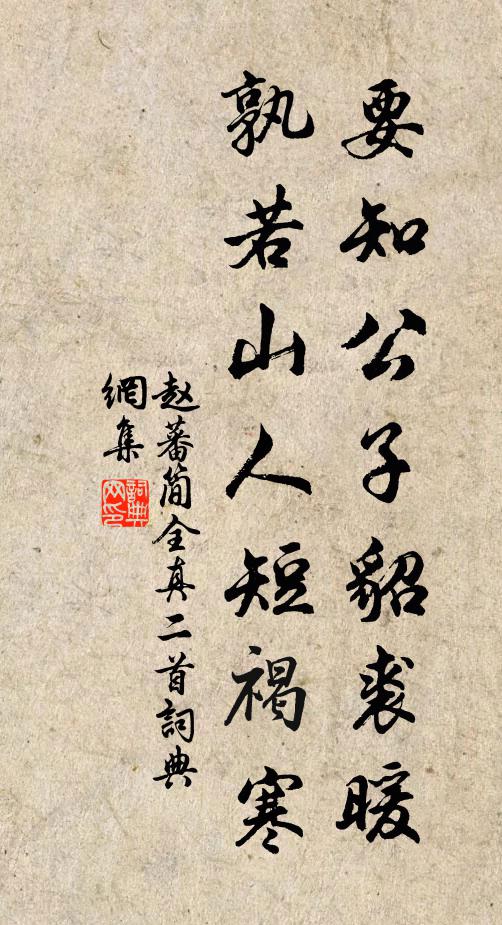 要知公子貂裘暖
孰若山人短褐寒
赵蕃简全真二首詞典
網集
詞典
网印